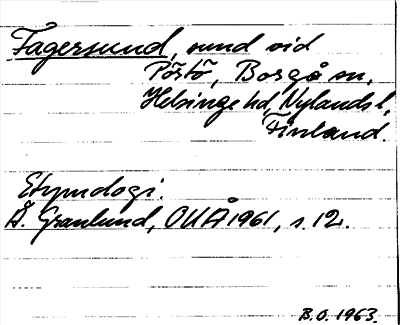 Fagersund, sund vid
Pörtö, Borgå sn,
Helsinge hd, Nylands l,
Finland.
Etymologi.
Å. Granlund, OUÅ 1961, s. 12.
B.O. 1963.